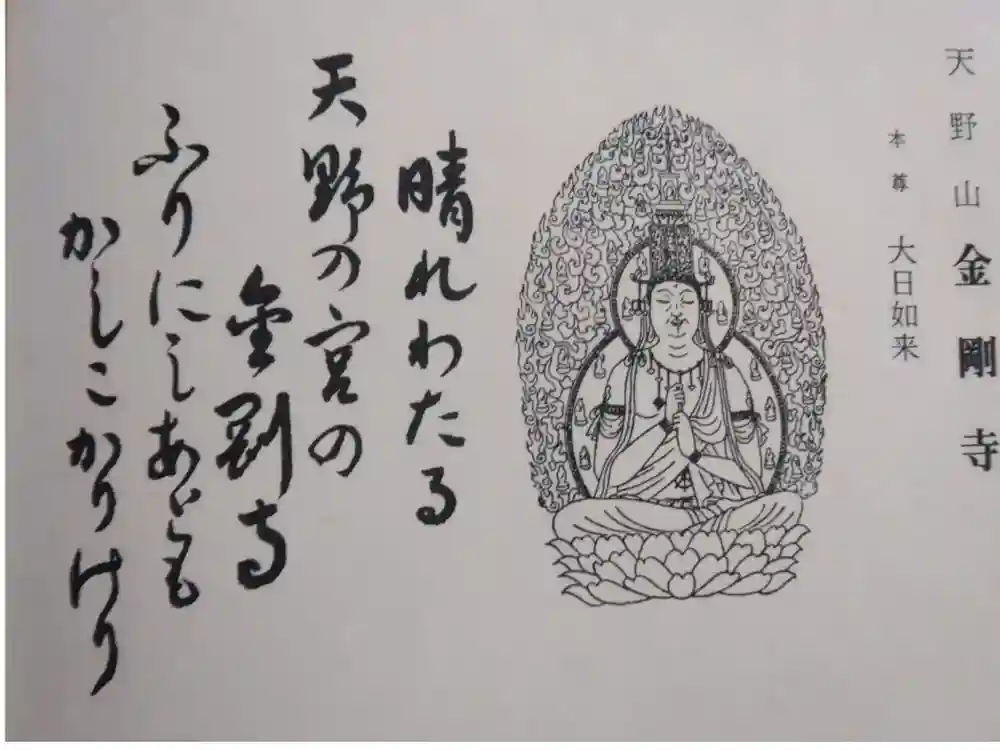 天野山金剛寺
本尊 大日如来
晴れわたる
天野の宮の
金剛寺
ふりにしあとも
かしこかりけり